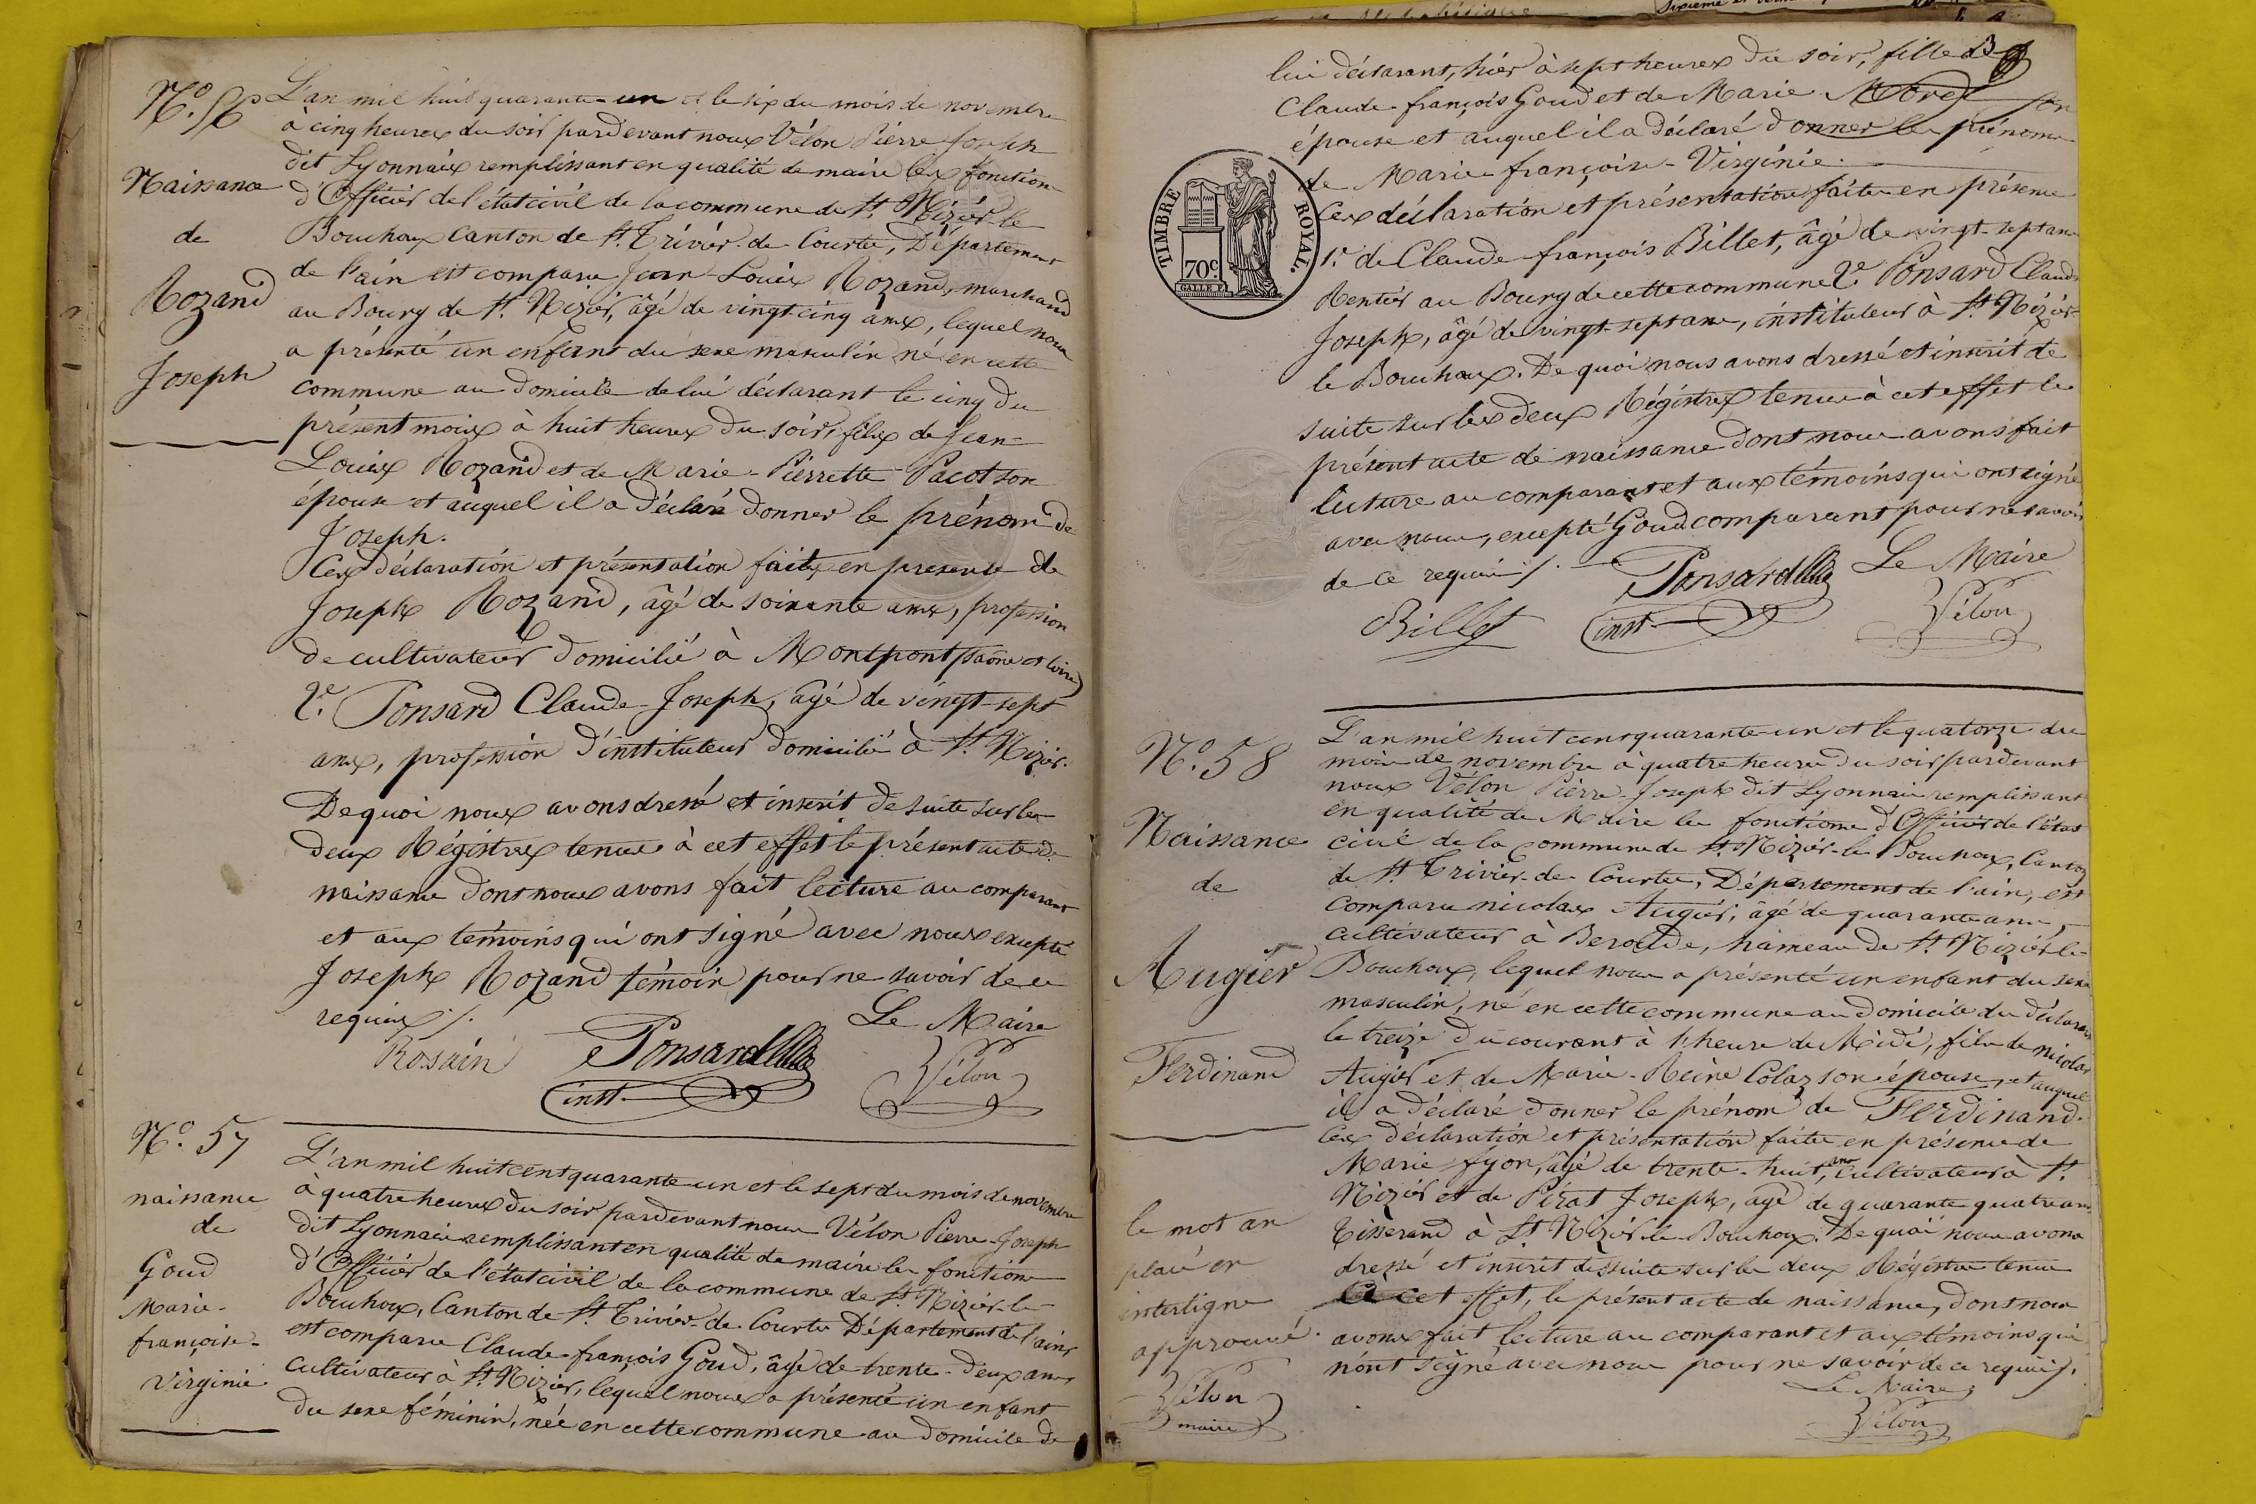 N.o 56
Naissance
de
Rozand
Joseph
L'an mil huit quarante-un et le six du mois de novembre
à cinq heures du soir pardevant nous Vélon Pierre Joseph
dit Lyonnais remplissant en qualité de maire les fonctions
d'Officier de l'état civil de la commune de St. Nizier-le
Bouchoux Canton de St. Trivier-de-Courtes, Département
de l'ain est comparu Jean-Louis Rozand, marchand
au Bourg de St. Nizier, âgé de vingt cinq ans, lequel nous
a présenté un enfant du sexe masculin né en cette
commune au domicile de lui déclarant le cinq du
présent mois à huit heures du soir, fils de Jean-
Louis Rozand et de Marie-Pierrette Pacot son
épouse et auquel il a déclaré donner le prénom de
Joseph.
Ces déclaration et présentation faites en présence de
Joseph Rozand, âgé de soixante ans, profession
de cultivateur domicilié à Montpont (Saône et Loire)
2.e Ponsard Claude-Joseph, âgé de vingt-sept
ans, profession d'instituteur domicilié à St. Nizier.
De quoi nous avons dressé et inscrit de suite sur les
deux Régistres tenus à cet effet le présent acte de
naissance dont nous avons fait lecture au comparant
et aux témoins qui ont signé avec nous excepté
Joseph Rozand témoin pour ne savoir de ce
requis ./.
Le Maire
Rosain Ponsard
inst. Vélon
N.o 57
naissance
de
Goud
Marie-
françoise-
Virginie
L'an mil huit cent quarante un et le sept du mois de novembre
à quatre heures du soir pardevant nous Vélon Pierre-Joseph
dit Lyonnais remplissant en qualité de maire les fonctions
d'Officier de l'état civil de la commune de St. Nizier-le-
Bouchoux, Canton de St. Trivier-de-Courtes Département de l'ain
est comparu Claude-françois Goud, âgé de trente-deux ans
cultivateur à St. Nizier, lequel nous a présenté un enfant
du sexe féminin, née en cette commune au domicile de
lui déclarant, hier à sept heures du soir, fille de
Claude-françois Goud et de Marie Morel son
épouse et auquel il a déclaré donner les prénoms
de Marie françoise-Virginie.
Ces déclaration et présentation faites en présence
1.o de Claude-françois Billet, âgé de vingt-sept ans
Rentier au Bourg de cette commune 2.e Ponsard Claude
Joseph, âgé de vingt-sept ans, instituteur à St. Nizier-
le Bouchoux. De quoi nous avons dressé et inscrit de
suite sur les deux Régistres tenus à cet effet le
présent acte de naissance dont nous avons fait
lecture au comparant et aux témoins qui ont signé
avec nous, excepté Goud comparant pour ne savoir
de ce requis ./.
Ponsard Le Maire
Billet inst. Vélon
TIMBRE ROYAL.
70c.
N.o 58
Naissance
de
Augier
Ferdinand
L'an mil huit cent quarante-un et le quatorze du
mois de novembre à quatre heures du soir pardevant
nous Vélon Pierre-Joseph dit Lyonnais remplissant
en qualité de Maire les fonctions d'Officier de l'état
civil de la commune de St. Nizier-le Bouchoux, Canton
de St. Trivier-de-Courtes, Département de l'ain, est
comparu nicolas Augier, âgé de quarante ans,
cultivateur à Beroude, hameau de St. Nizier-le-
Bouchoux, lequel nous a présenté un enfant du sexe
masculin, né en cette commune au domicile du déclarant
le treize du courant à 1 heure de Midi, fils de nicolas
Augier et de Marie-Reine Colaz son épouse, et auquel
il a déclaré donner le prénom de Ferdinand.
Ces déclaration et présentation faites en présence de
Marie fyon, âgé de trente-huit, ans cultivateur à St.
Nizier et de Pirat Joseph, âgé de quarante quatre ans,
tisserand à St. Nizier-le-Bouchoux. De quoi nous avons
dressé et inscrit de suite sur les deux Régistres tenus
à cet effet, le présent acte de naissance, dont nous
avons fait lecture au comparant et aux témoins qui
n'ont signé avec nous pour ne savoir de ce requis ./.
Le Maire
Vélon
le mot an
placé en
interligne
approuvé.
Vélon
maire